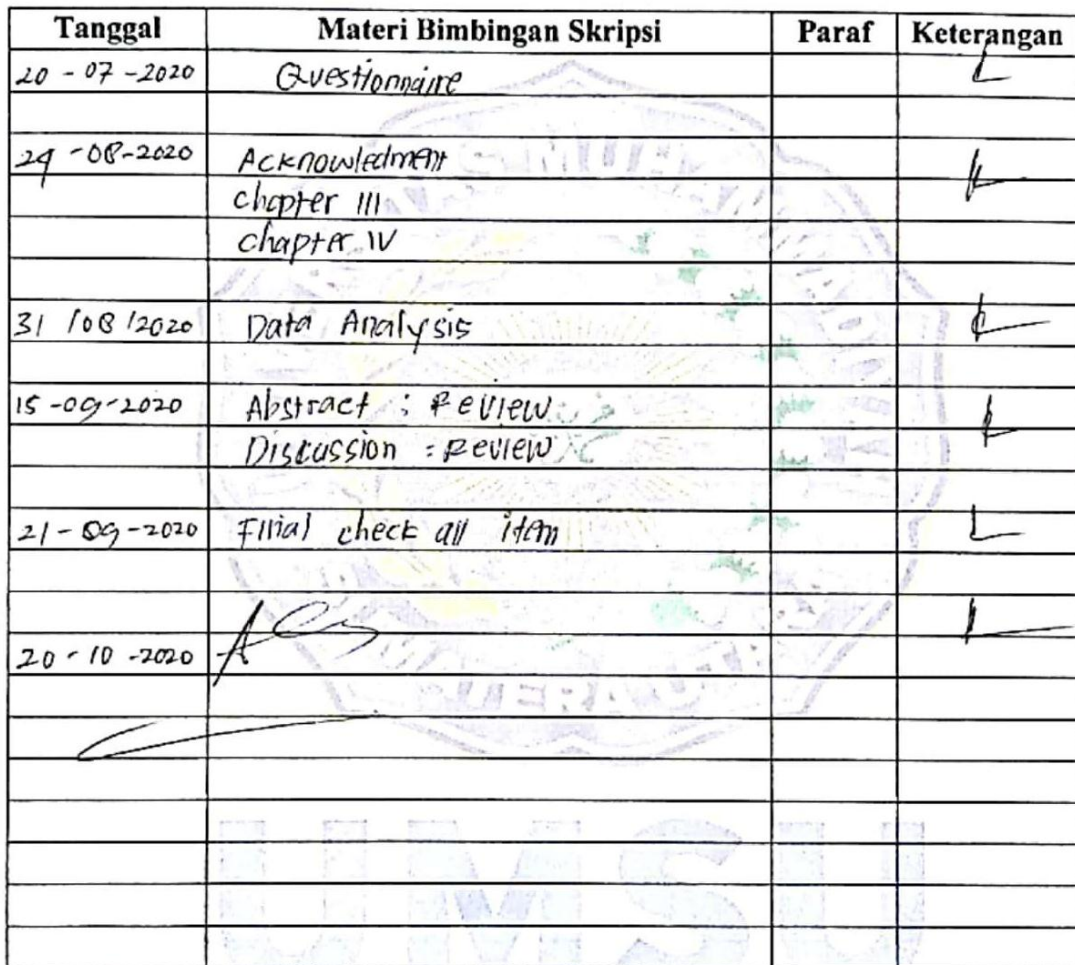 Tanggal Materi Bimbingan Skripsi Paraf Keterangan
20-07-2020 Questionnaire
24-08-2020 Acknowledment
chapter III
chapter IV
31/08/2020 Data Analysis
15-09-2020 Abstract : Review
Discussion : Review
21-09-2020 Final check all item
20-10-2020
UMSU